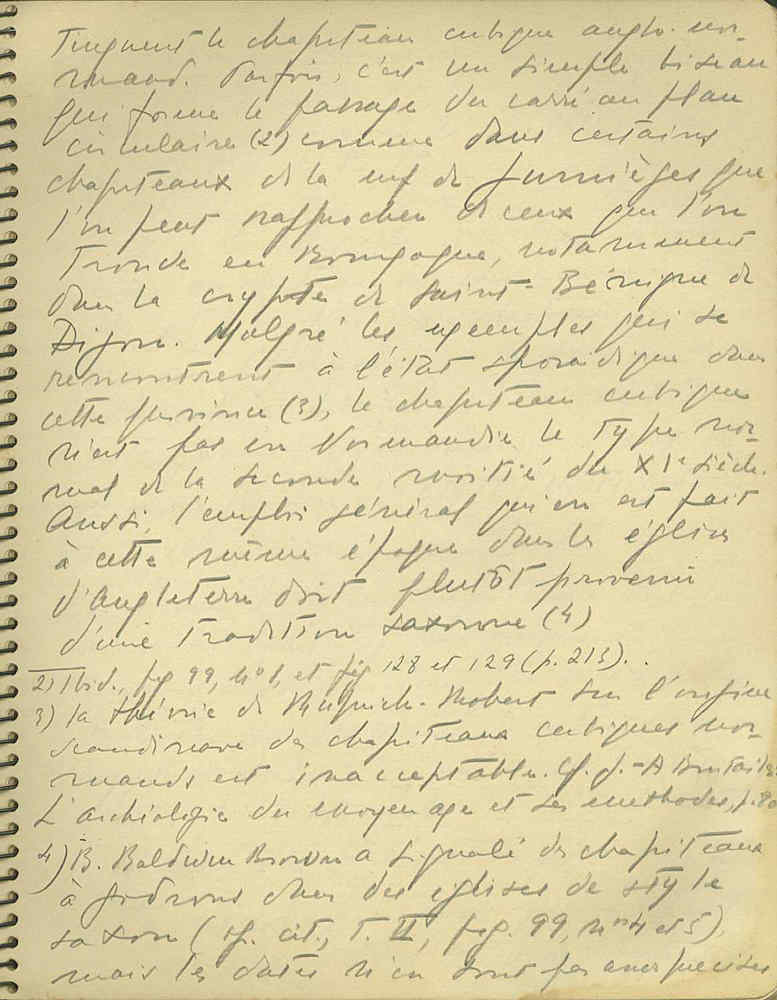 tinguent le chapiteau cubique anglo-nor-
mand. Parfois, c'est un simple biseau
qui forme le passage du carré au plan
circulaire (2) comme dans certains
chapiteaux de la nef de Jumièges que
l'on peut rapprocher de ceux que l'on
trouve en Bourgogne, notamment
dans la crypte de Saint-Bénigne de
Dijon. Malgré les exemples qui se
rencontrent à l'état sporadique dans
cette province (3), le chapiteau cubique
n'est pas en Normandie le type nor-
mal de la seconde moitié du XIe siècle.
Aussi, l'emploi général qui en est fait
à cette même époque dans les églises
d'Angleterre doit plutôt provenir
d'une tradition saxonne (4)
2) Ibid., fig 99, n° 1, et fig 128 et 129 (p. 213).
3) la théorie de Ruprich-Robert sur l'origine
scandinave des chapiteaux cubiques nor-
mands est inacceptable. Cf. J.-A Brutails
L'archéologie du moyen age et ses méthodes, p.
4) B. Baldwin Brown a signalé des chapiteaux
à godrons dans des églises de style
saxon (op. cit., T. II, fig. 99, nos 4 et 5),
mais les dates n'en sont pas assez précises